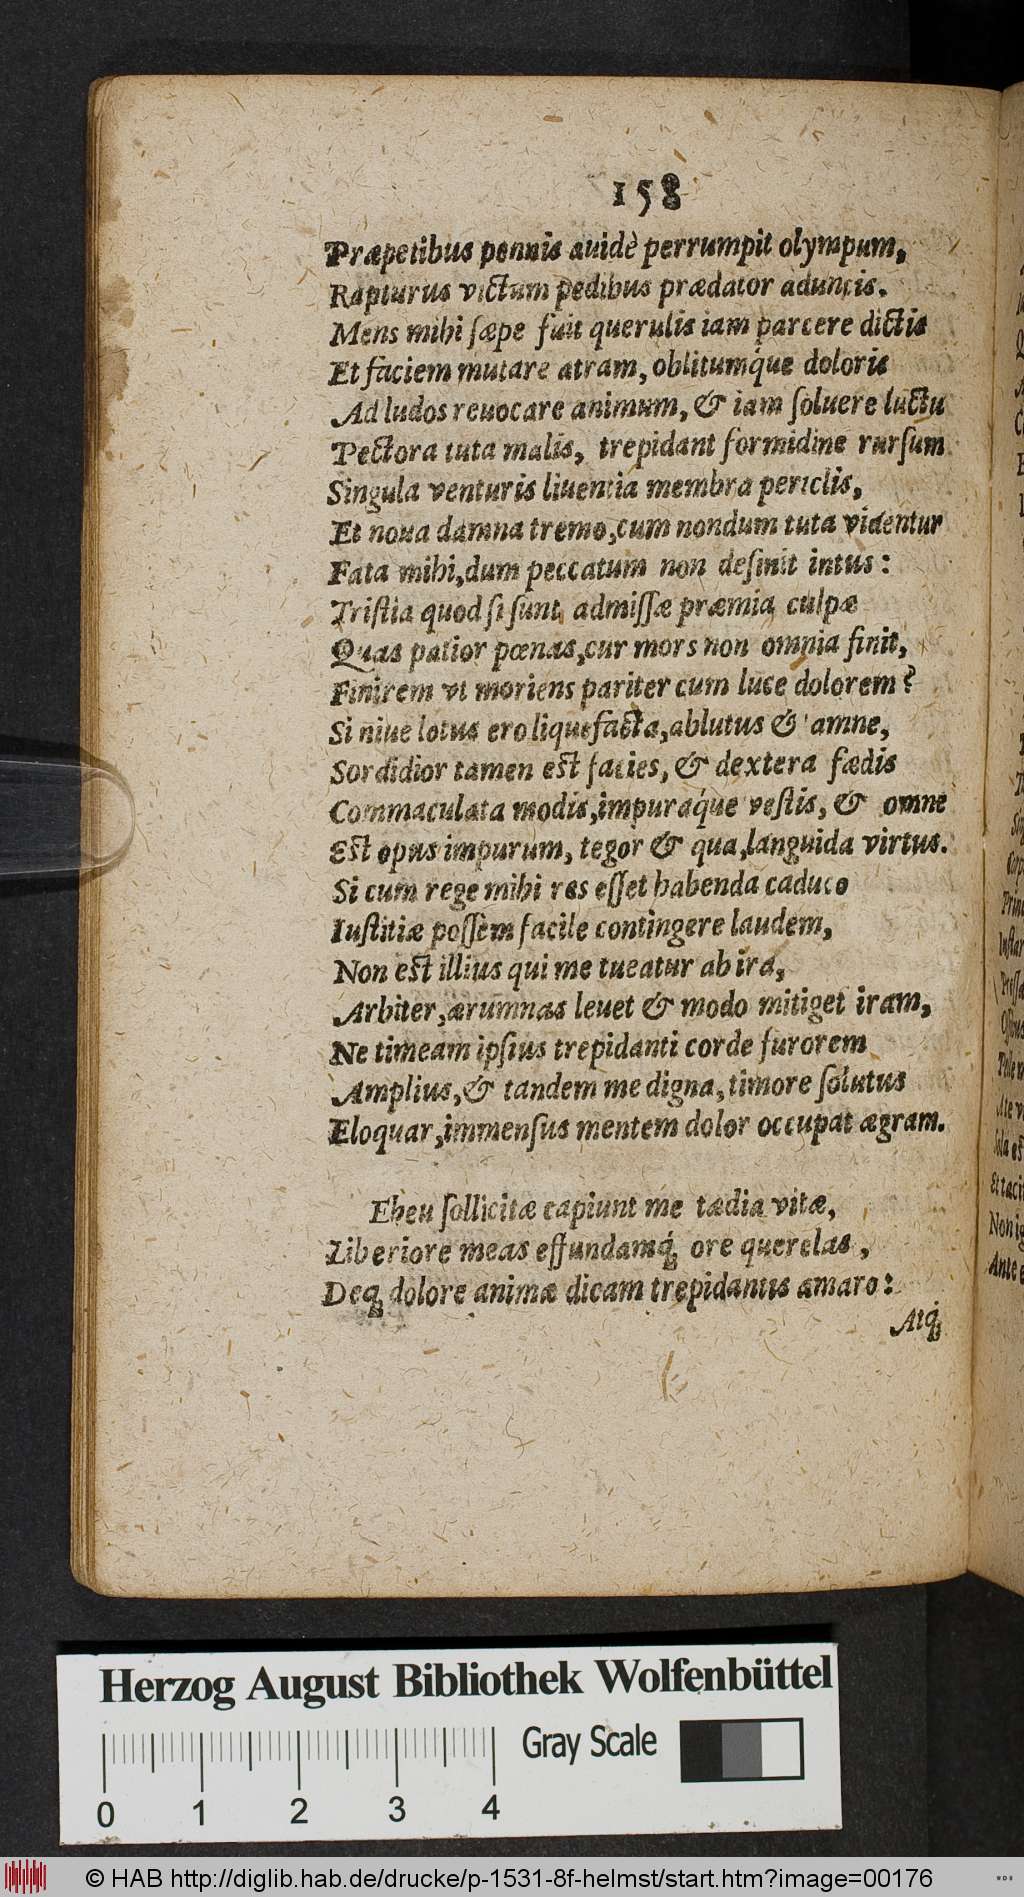 158
Præpetibus pennis auidè perrumpit olympum,
Rapturus victum pedibus prædator aduncis.
Mens mihi ſæpe fuit querulis iam parcere dictis
Et faciem mutare atram, oblitumq́ue doloris
Ad ludos reuocare animum, & iam ſoluere luctu
Pectora tuta malis, trepidant formidine rurſum
Singula venturis liuentia membra periclis,
Et noua damna tremo, cum nondum tuta videntur
Fata mihi, dum peccatum non deſinit intus:
Triſtia quod ſi ſunt admiſſæ præmia culpæ
Quas patior pœnas, cur mors non omnia finit,
Finirem vt moriens pariter cum luce dolorem?
Si niue lotus ero liquefacta, ablutus & amne,
Sordidior tamen est facies, & dextera fædis
Commaculata modis, impuraq́ue veſtis, & omne
Est opus impurum, tegor & qua, languida virtus.
Si cum rege mihi res eſſet habenda caduco
Iuſtitiæ poſſem facile contingere laudem,
Non est illius qui me tueatur ab ira,
Arbiter, ærumnas leuet & modo mitiget iram,
Ne timeam ipſius trepidanti corde furorem
Amplius, & tandem me digna, timore ſolutus
Eloquar, immenſus mentem dolor occupat ægram.
Eheu ſollicitæ capiunt me tædia vitæ,
Liberiore meas effundamq́; ore querelas,
Deq; dolore animæ dicam trepidantis amaro:
Atq́;
Herzog August Bibliothek Wolfenbüttel
Gray Scale
0 1 2 3 4
© HAB http://diglib.hab.de/drucke/p-1531-8f-helmst/start.htm?image=00176